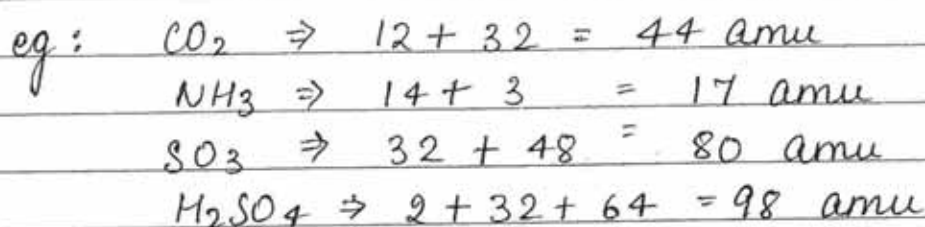 eg : CO₂ ⇒ 12 + 32 = 44 amu
NH₃ ⇒ 14 + 3 = 17 amu
SO₃ ⇒ 32 + 48 = 80 amu
H₂SO₄ ⇒ 2 + 32 + 64 = 98 amu